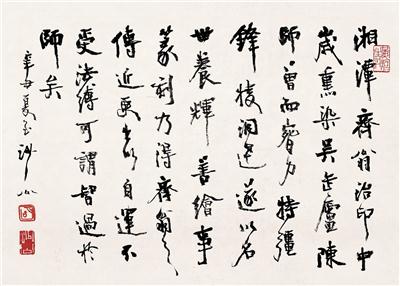 湘潭齊翁治印中
歲熏染吴缶廬陳
師曾而膂力特彊
鋒棱洞達遂以名
世養輝善繪事
篆刻乃得齊翁之
傳近更出以自運不
受法縛可謂智過於
師矣
辛丑夏至